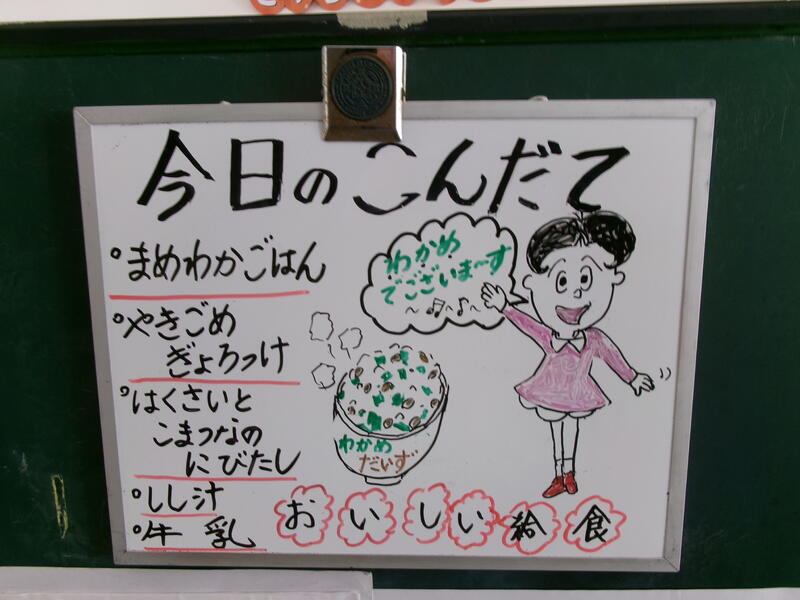 今日のこんだて
°まめわかごはん
°やきごめ
ぎょろっけ
°はくさいと
こまつなの
にびたし
°しし汁
°牛乳
わかめ
でございま～す
～♬～♪～
わかめ
だいず
おいしい給食